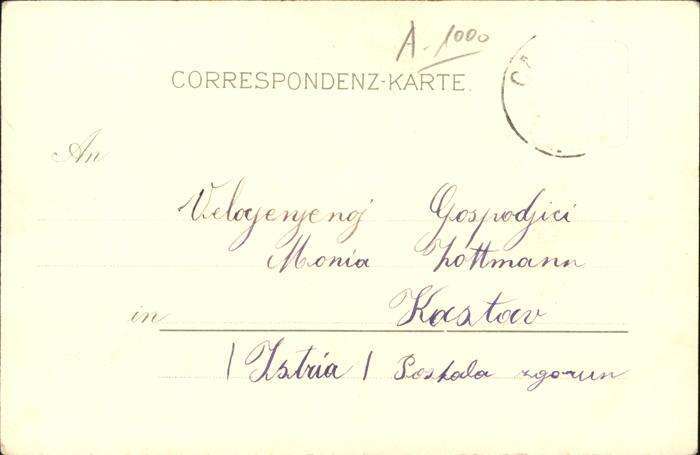 A. 1000
CORRESPONDENZ-KARTE.
An
Velacjenjenoj Gospodjici
Monia Lottmann
in Kastav
/ Istria /